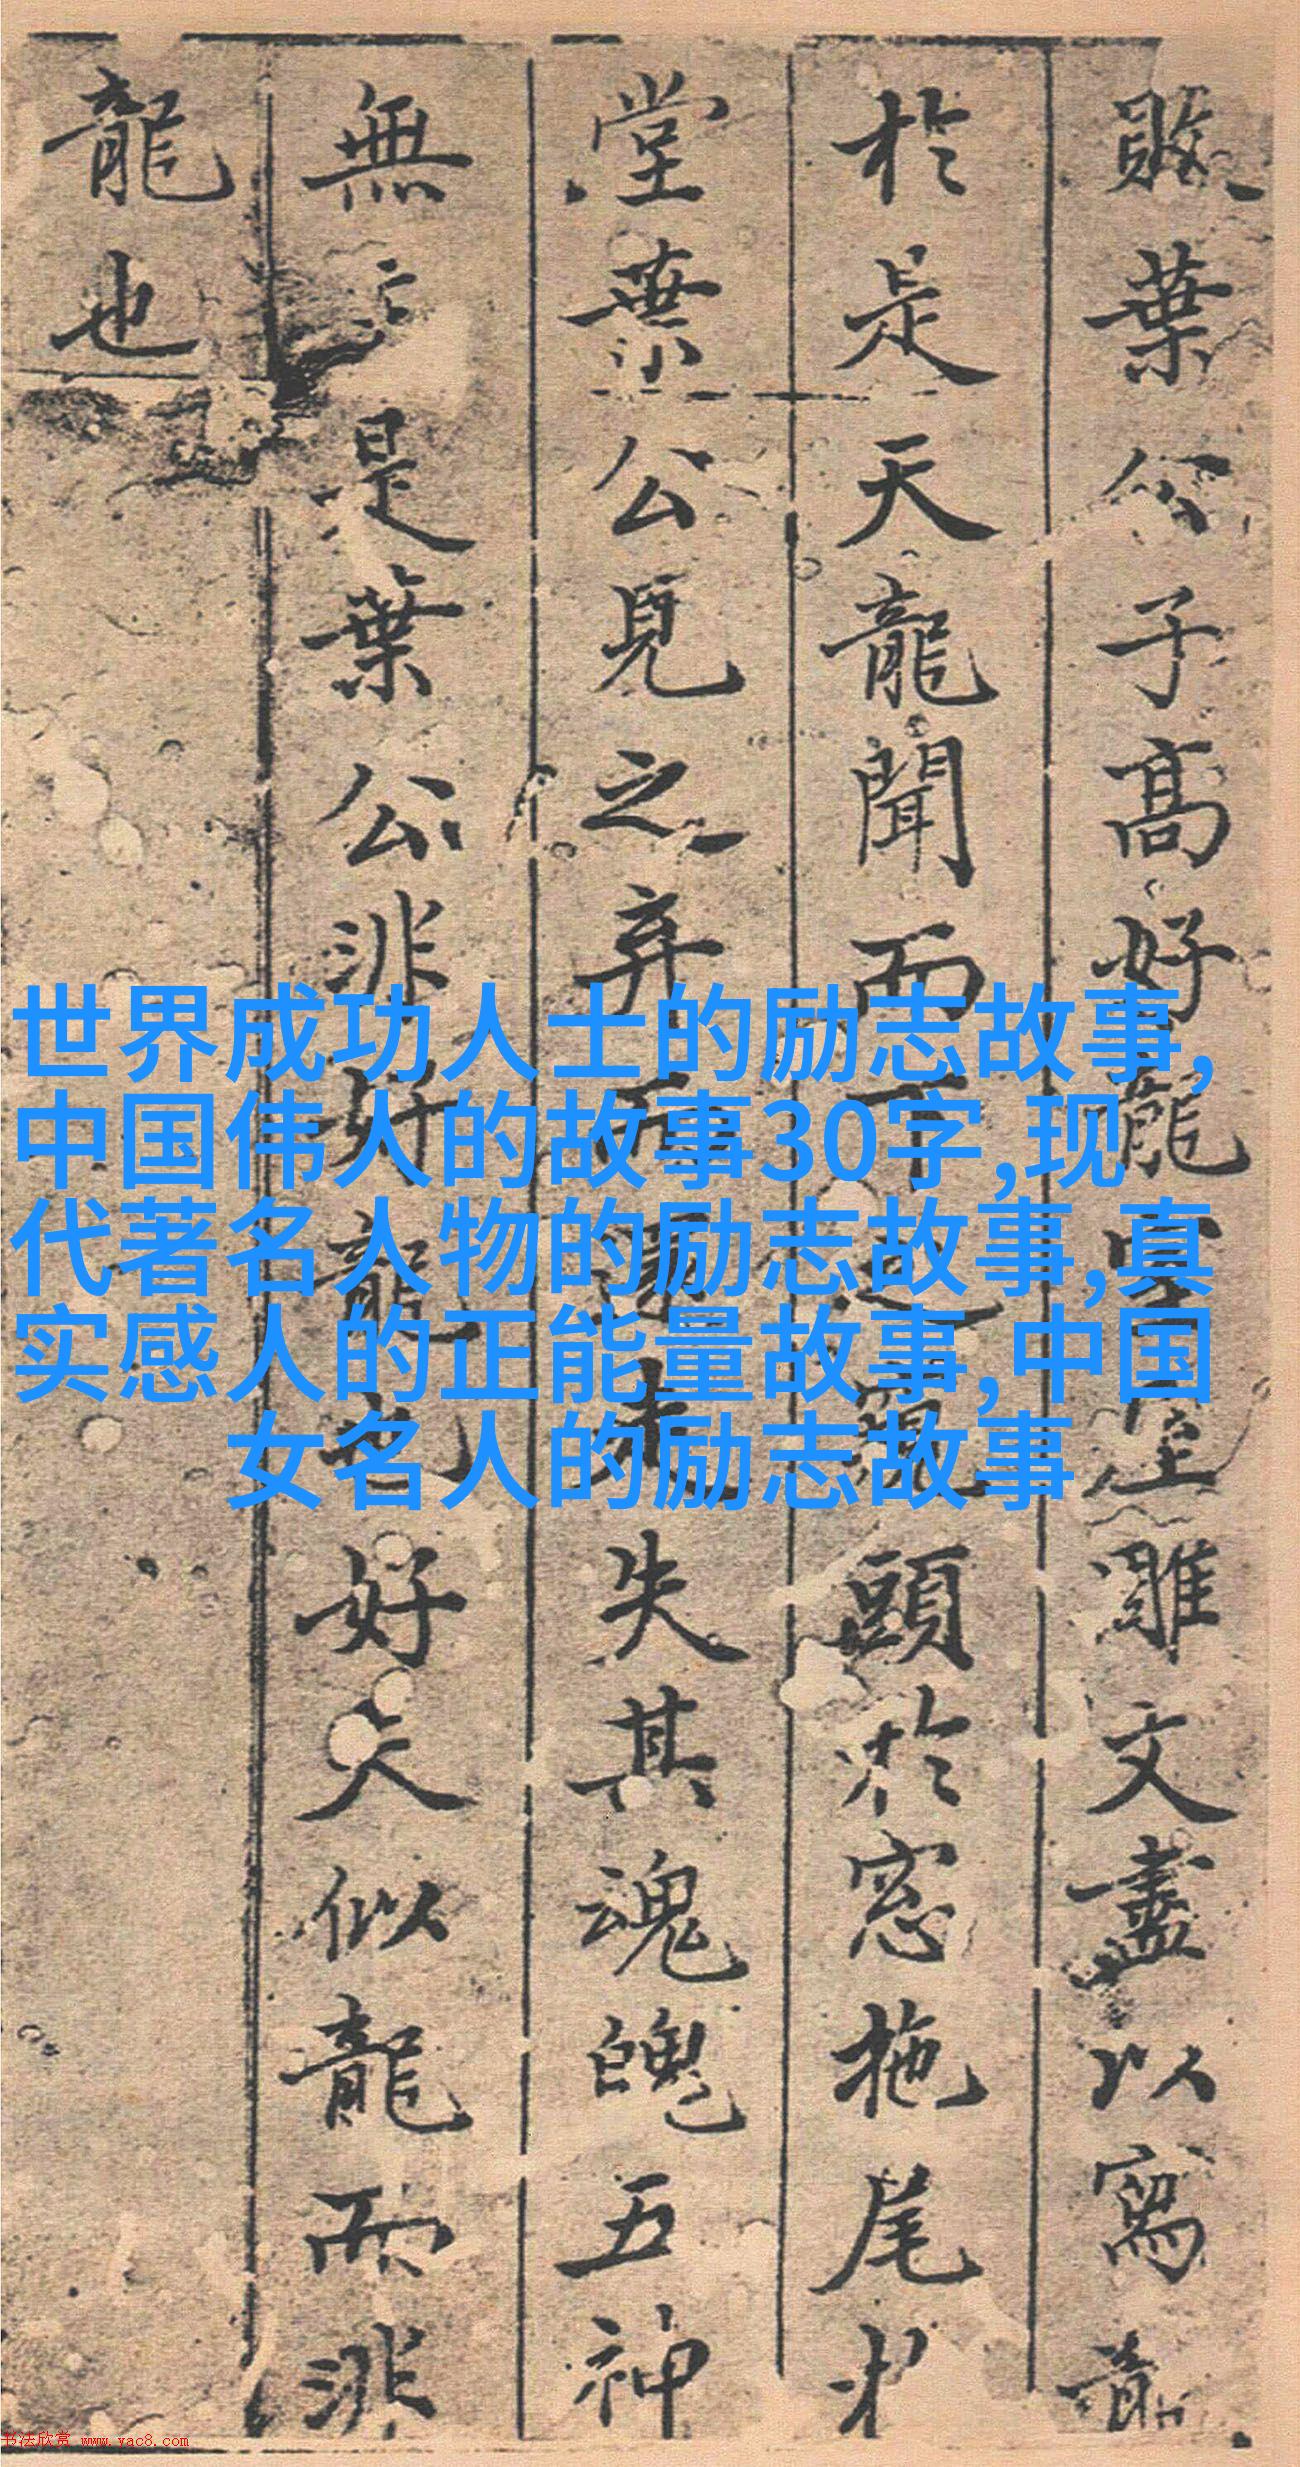 敗葉公子高好龍室屋雕文盡以寫龍
於是天龍聞而下之窺頭於窓拖尾於
堂葉公見之弃而還走失其魂魄五神
無主是葉公非好龍也好夫似龍而非
龍也
世界成功人士的励志故事,
中国伟人的故事30字,现
代著名人物的励志故事,真
实感人的正能量故事,中国
女名人的励志故事
书法欣赏 www.yac8.com